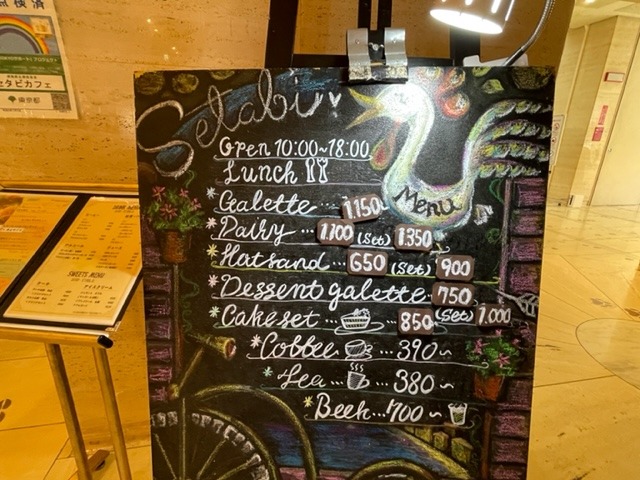 点検済
セタビカフェ
東京都
Setabi
MENU
Open 10:00~18:00
Lunch
*Galette...1.150
*Dairy...1.100 (Set) 1.350
*Hotsand...650 (Set) 900
*Dessert galette...750
*Cakeset...850 (Set) 1.000
*Coffee...390~
*Tea...380~
*Beer...700~
SWEETS MENU